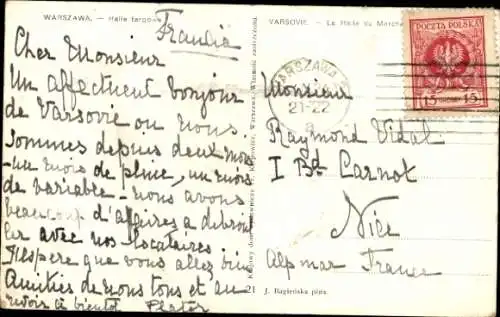 WARSZAWA. — Hale targowe
VARSOVIE. — La Halle du Marché
Francja
POCZTA POLSKA
15 15
WARSZAWA
21-22
Cher Monsieur
Un affectueux bonjour
de Varsovie où nous
sommes depuis deux mois
un mois de pluie, un mois
de variable - nous avons
beaucoup d'affaires a débrouil
ler avec nos locataires.
J'espère que vous allez bien
Amitiés de nous tous et au
revoir à bientôt Plater
Monsieur
Raymond Vidal
1 Bd Carnot
Nice
Alp mar France
21 J. Bagieńska pinx.